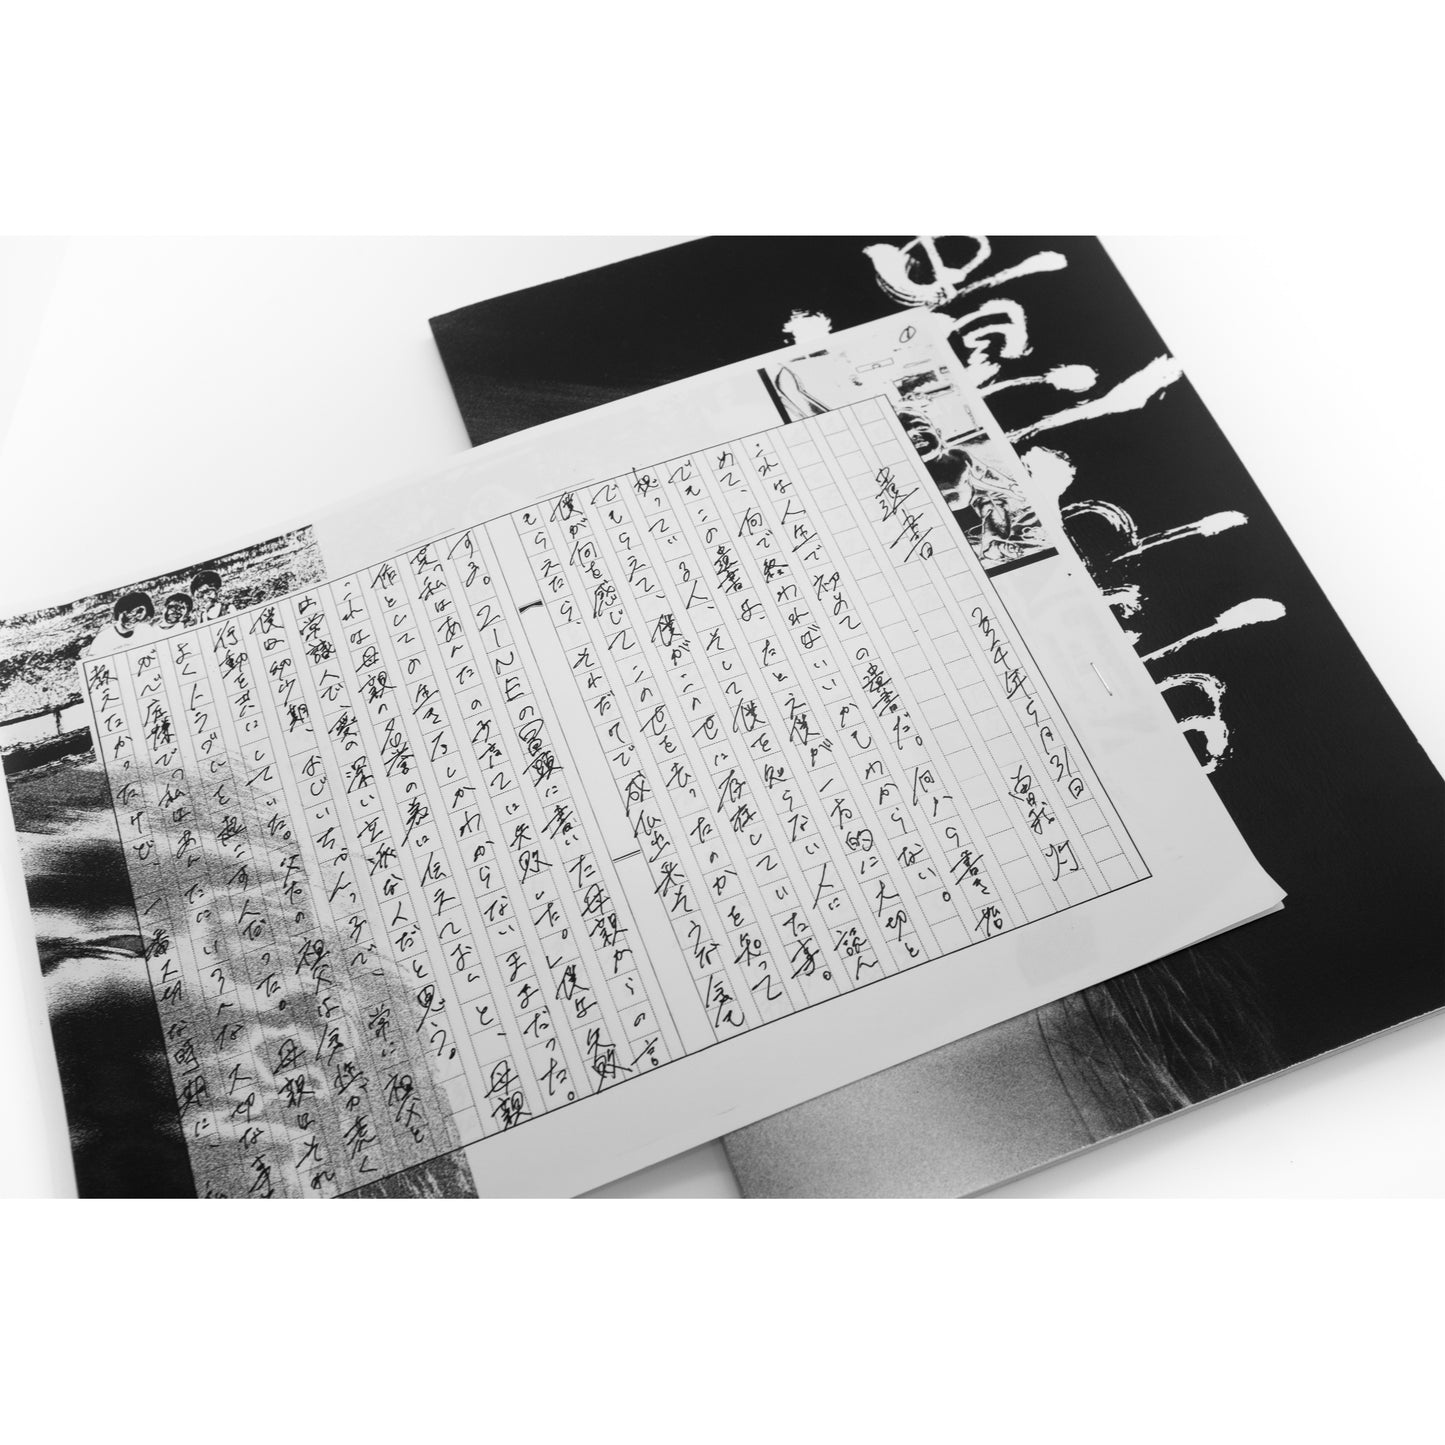 遺書
五年五月31日
曽我 灯
これは人生で初めての遺書だ。何から書き始
めて、何で終わればいいかもわからない。
でもこの遺書は、たとえ僕が一方的に大切と
想っている人、そして僕を知らない人に読ん
でもらえて、僕がこの世に存在していた事。
僕が何を感じてこの世を去ったのかを知って
もらえたら、それだけで成仏出来そうな気も
する。
ZINEの冒頭に書いた母親からの言
私はあんたの子育てに失敗した。」僕は失敗
作としての生き方しかわからないままだった。
これは母親の名誉の為に伝えておくと、母親
は常識人で、愛の深い立派な人だと思う。
僕は幼少期、おじいちゃんっ子で、常に祖父と
行動を共にしていた。
祖父は
よくトラブルを起こす人だった。母親はそれ
が心底嫌で「私はあんたにいろんな大切な事
教えたかったけど、一番大切な時期に、